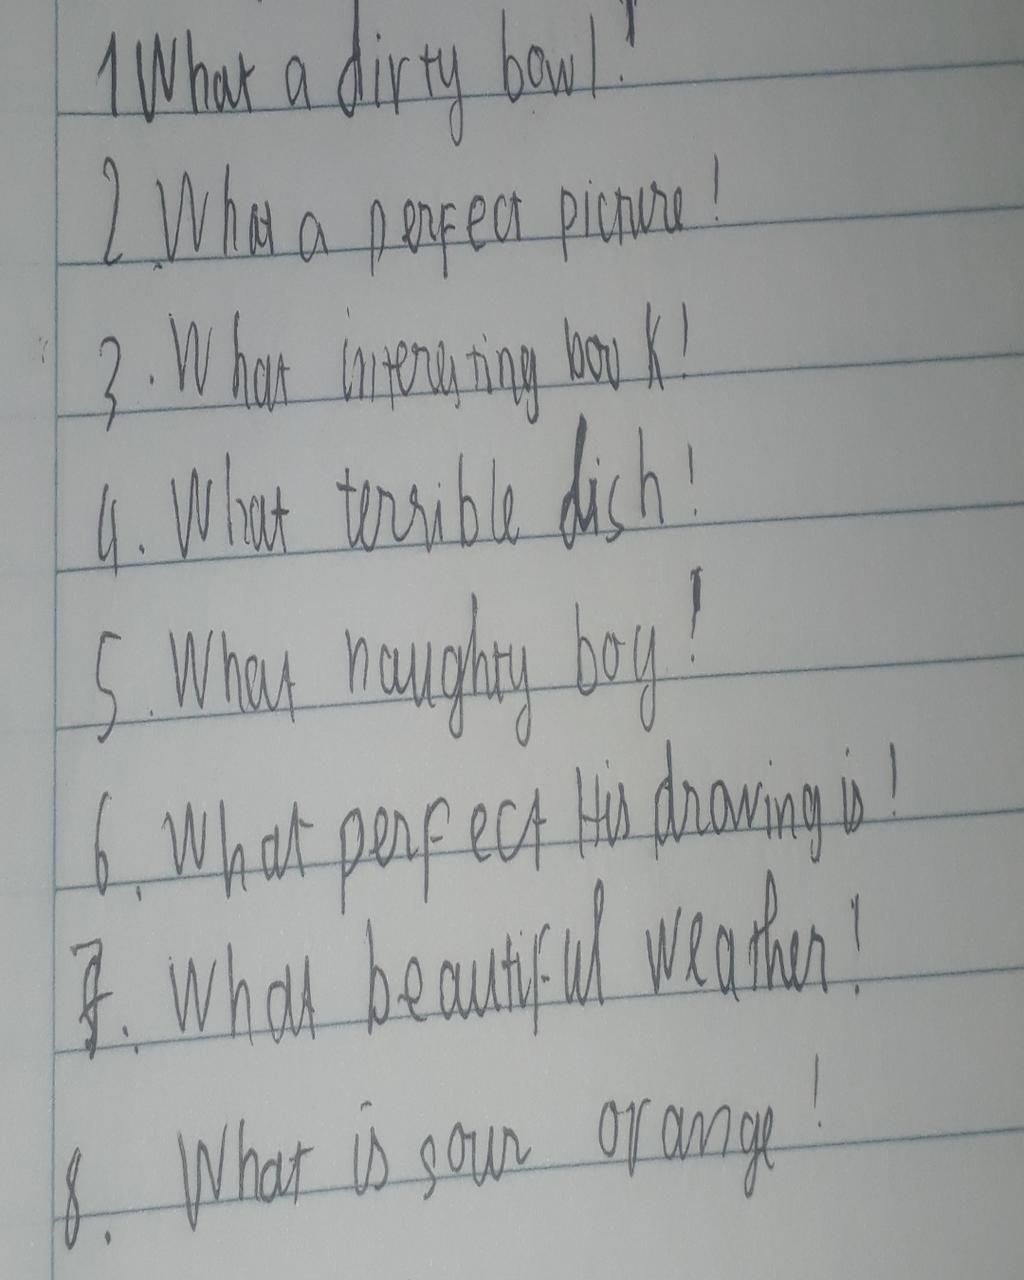 1 What a dirty bowl!
2. What a perfect picture!
3. What interesting book!
4. What terrible dish!
5. What naughty boy!
6. What perfect His drawing is!
7. What beautiful weather!
8. What is sour orange!